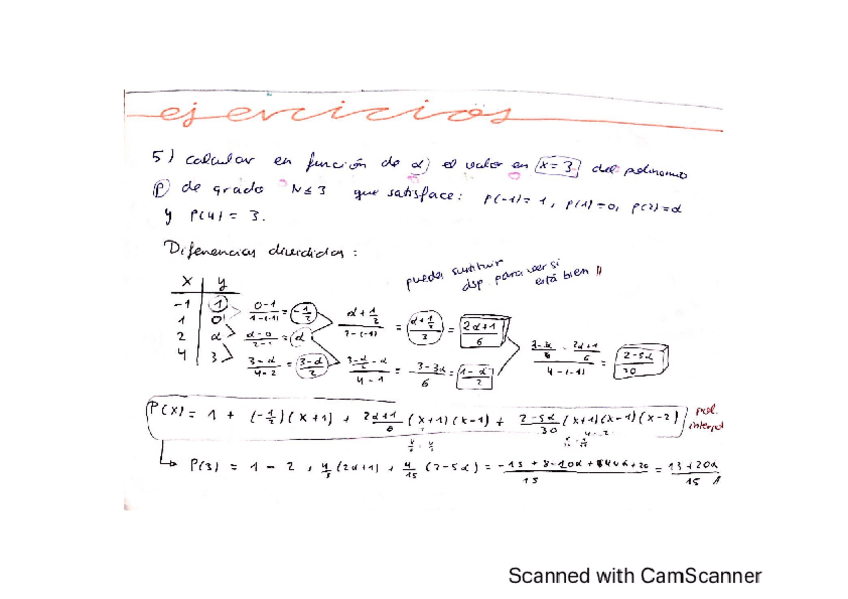 ejercicios
5) calcular en función de α) el valor en x=3 del polinomio
(P) de grado N≤3 que satisface: P(-1)=1, P(1)=0, P(2)=α
y P(4) = 3.
Diferencias divididas:
puedes sustituir
dsp. para ver si
está bien
x | y
-1 | 1
1 | 0
2 | α
4 | 3
(0-1)/(1-(-1)) = -1/2
(α-0)/(2-1) = α
(3-α)/(4-2) = (3-α)/2
(α+1/2)/(2-(-1)) = (α+1/2)/3 = (2α+1)/6
((3-α)/2-α)/(4-1) = (3-3α)/6 = (1-α)/2
/(4-(-1)) = (2-5α)/30
P(x) = 1 + (-1/2)(x+1) + (2α+1)/6 (x+1)(x-1) + (2-5α)/30 (x+1)(x-1)(x-2) pol. interpol
P(3) = 1 - 2 + 4/3 (2α+1) + 4/15 (2-5α) = = (13+20α)/15
Scanned with CamScanner